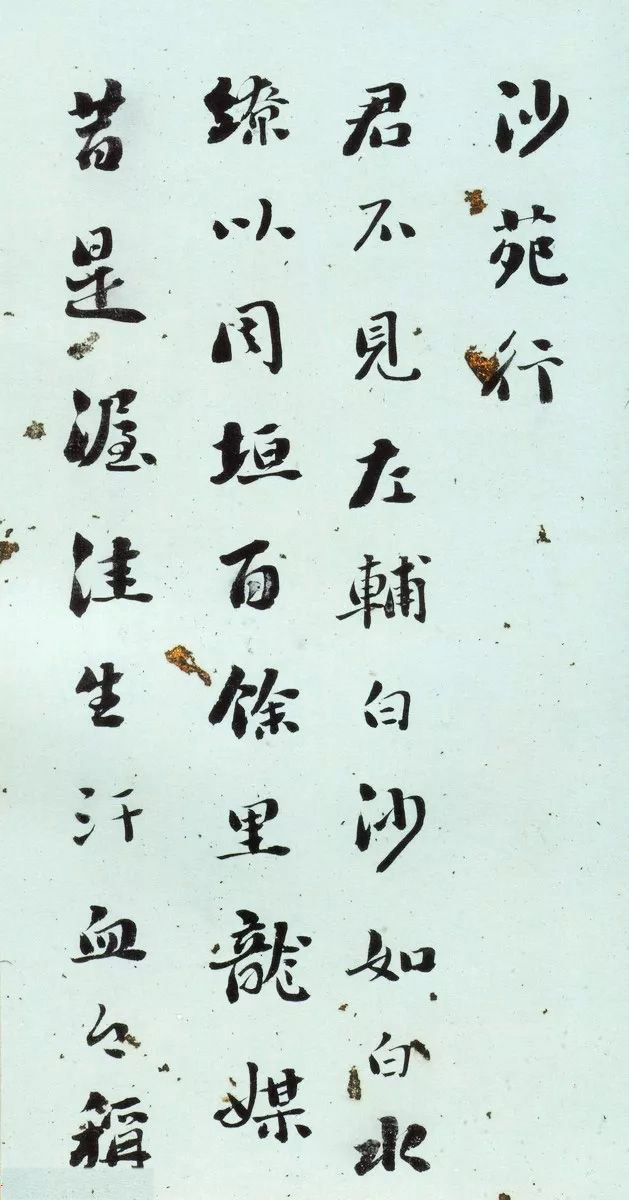 沙苑行
君不見左輔白沙如白水
繚以周垣百餘里龍媒
昔是渥洼生汗血今稱